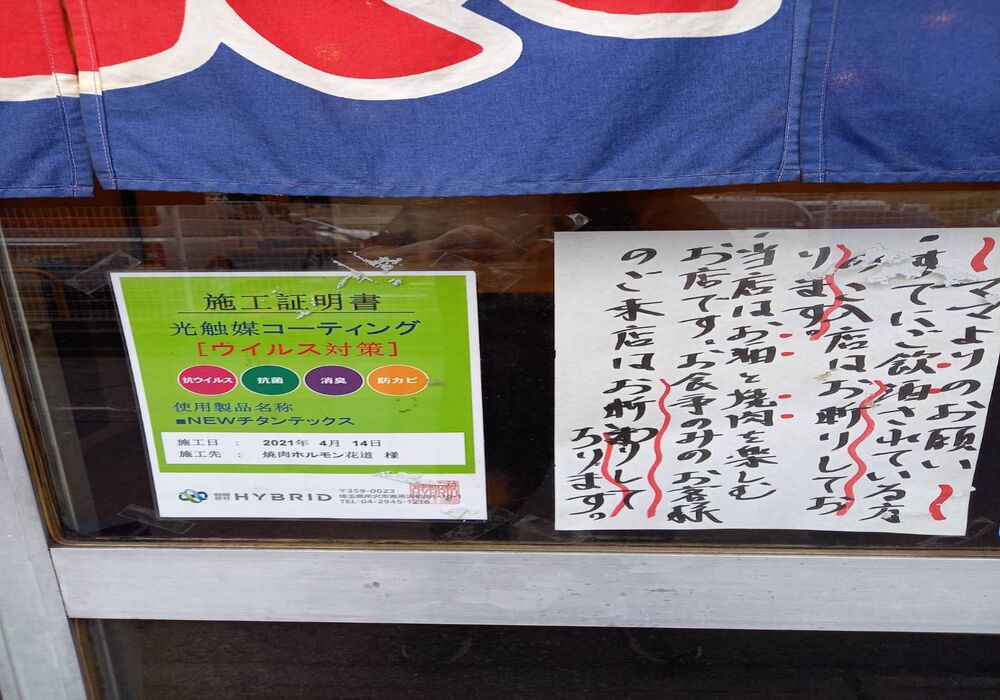 施工証明書
光触媒コーティング
[ウイルス対策]
抗ウイルス 抗菌 消臭 防カビ
使用製品名称
■NEWチタンテックス
施工日 : 2021年 4月 14日
施工先 : 焼肉ホルモン花道 様
HYBRID
〒359-0023
埼玉県所沢市東所沢
TEL:04-2945-1216
ママよりのお願い
・すでにご飲酒されている方
のご入店はお断りしてお
ります。
・当店はお酒と焼肉を楽しむ
お店です。お食事のみのお客様
のご来店はお断りして
おります。